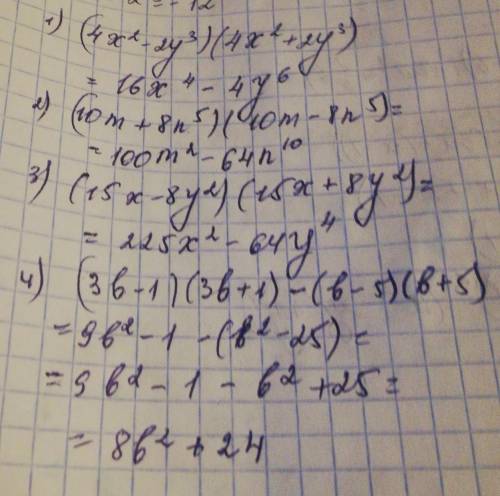 2 = -12
1) (4x²-2y³)(4x²+2y³)
= 16x⁴ - 4y⁶
2) (10m + 8n⁵)(10m - 8n⁵)=
= 100m² - 64n¹⁰
3) (15x-8y²)(15x+8y²)=
= 225x² - 64y⁴
4) (3b-1)(3b+1)-(b-5)(b+5)
= 9b² - 1 - (b²-25) =
= 9b² - 1 - b² + 25 =
= 8b² + 24